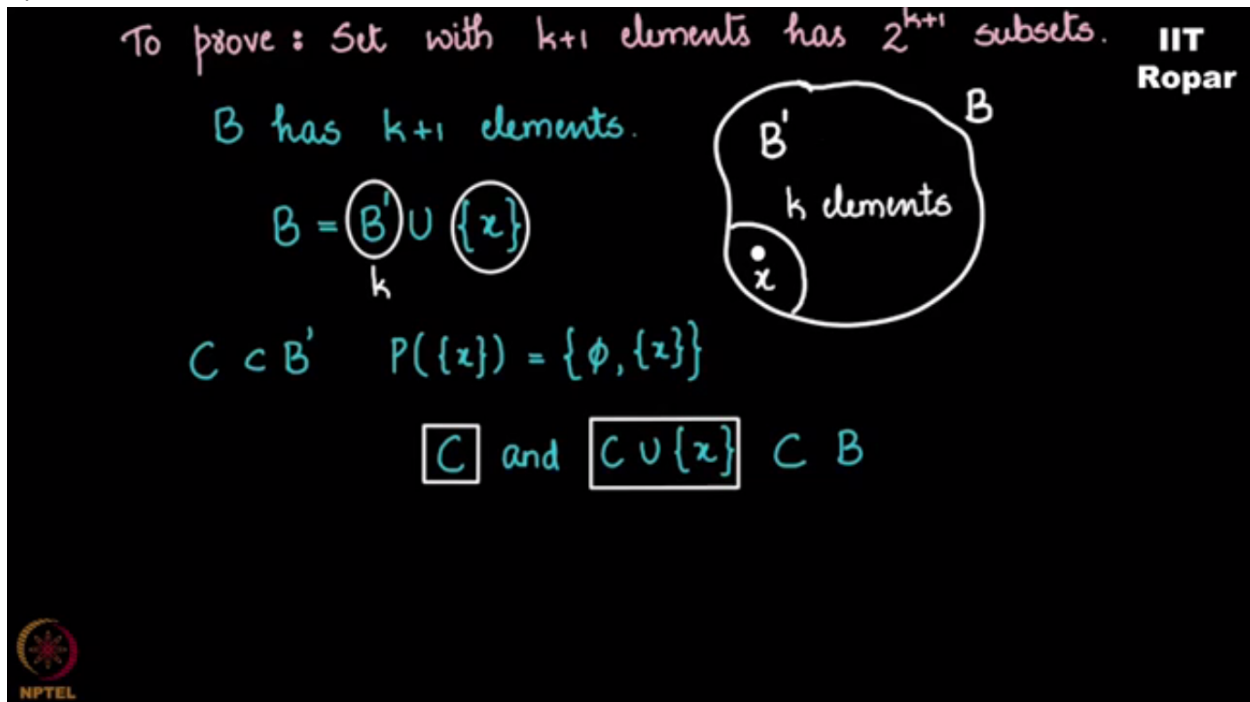 To prove : Set with k+1 elements has 2^{k+1} subsets.
IIT
Ropar
B has k+1 elements.
B = B' ∪ {x}
k
B
B'
k elements
x
C ⊂ B' P({x}) = {ϕ, {x}}
C and C ∪ {x} ⊂ B
NPTEL